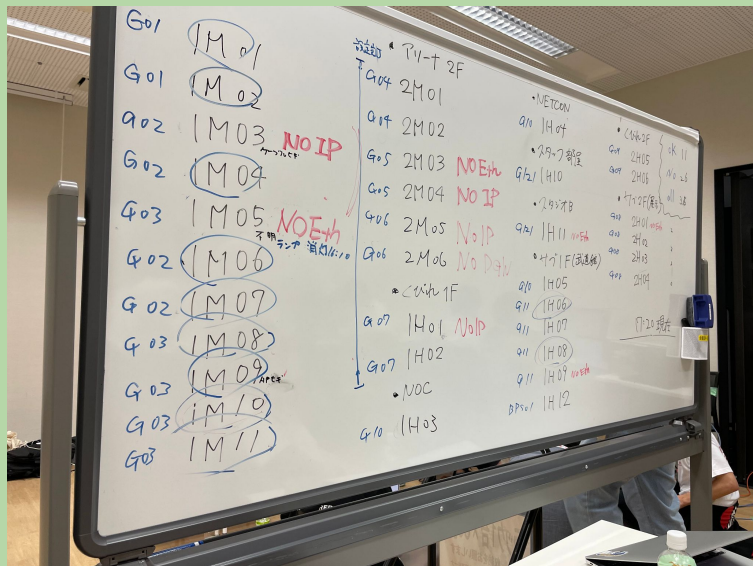 G01 1M01
G01 1M02
G02 1M03 NO IP
G02 1M04
G03 1M05 NO Eth
不明
ランプ 消灯
G02 1M06
G02 1M07
G03 1M08
G03 1M09
G03 1M10
G03 1M11
・アリーナ 2F
G04 2M01
G04 2M02
G05 2M03 NO Eth
G05 2M04 NO IP
G06 2M05 NO IP
G06 2M06
1F
G07 1H01 NO IP
G07 1H02
・NOC
G10 1H03
・NETCON
G10 1H04
・スタッフ部屋
G121 1H10
・スタジオB
G121 1H11 NO Eth
・サブ1F
G10 1H05
G11 1H06
G11 1H07
G11 1H08
G11 1H09 NO Eth
1H12
2F
G09 2H05
G09 2H06
OK 11
2H01 NO Eth
2H02
2H03
2H04
17:20 現在